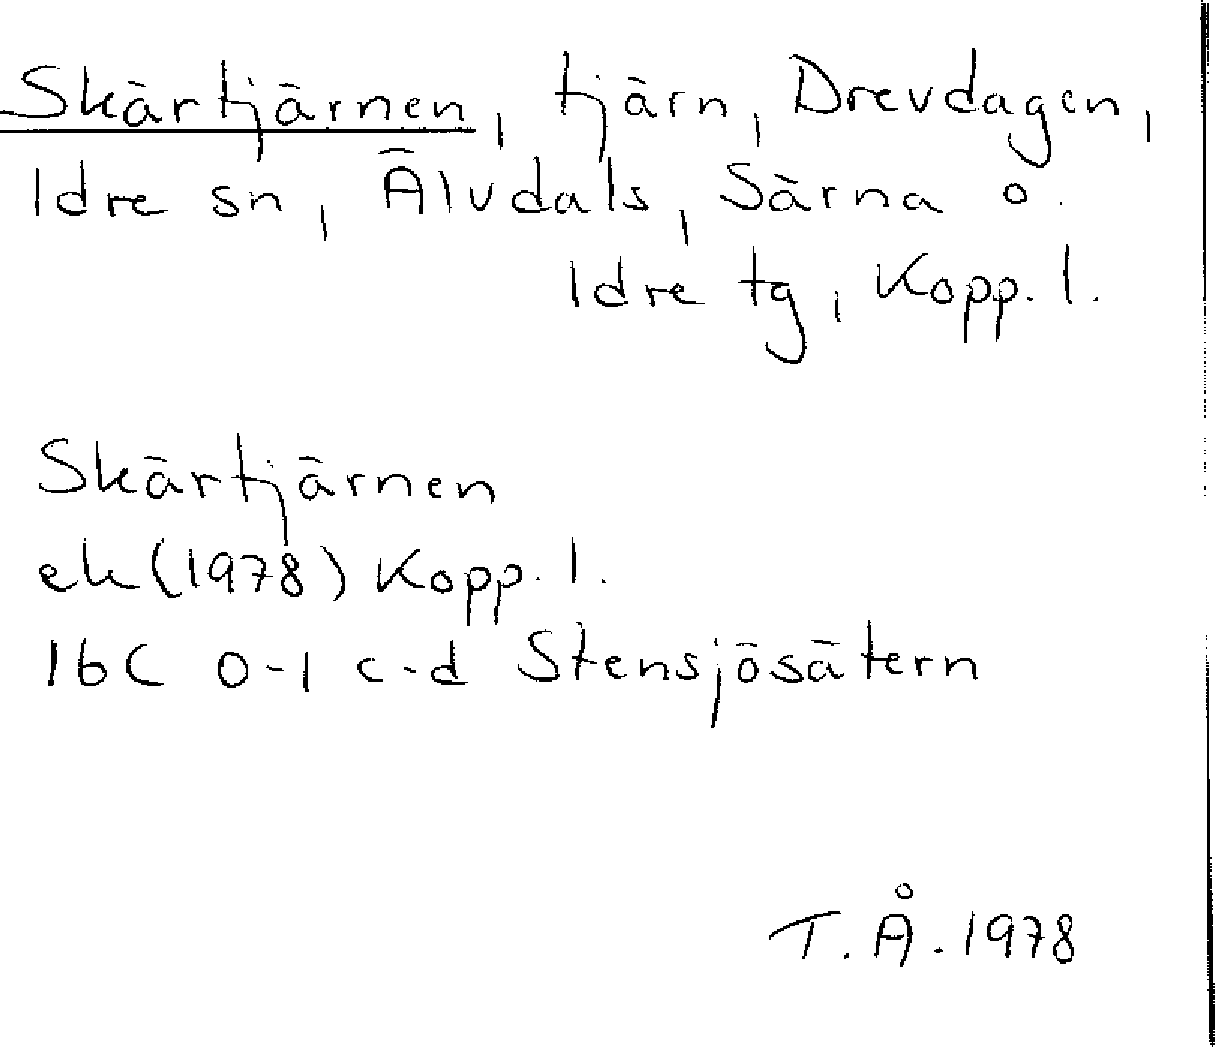 Skärtjärnen, tjärn, Drevdagen,
Idre sn, Älvdals, Särna o.
Idre tg, Kopp. l.
Skärtjärnen
ek (1978) Kopp. l.
16C 0-1 c-d Stensjösätern
T. Å. 1978